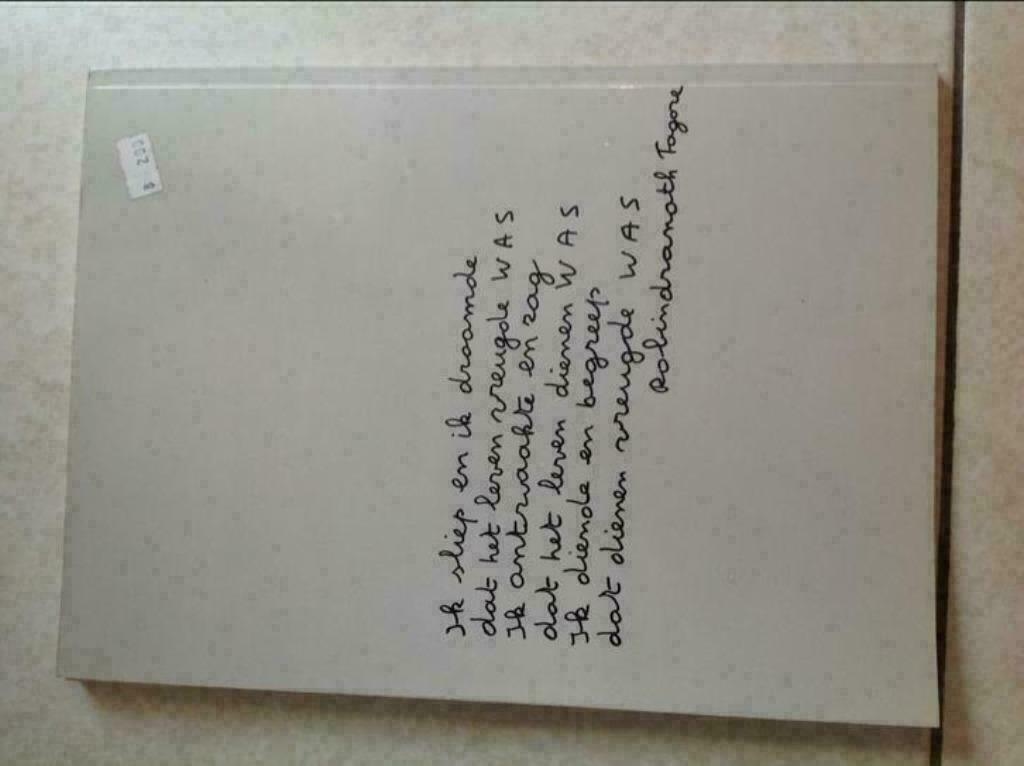 Ik sliep en ik droomde
dat het leven vreugde WAS
Ik ontwaakte en zag
dat het leven dienen WAS
Ik diende en begreep
dat dienen vreugde WAS
Robindranath Tagore